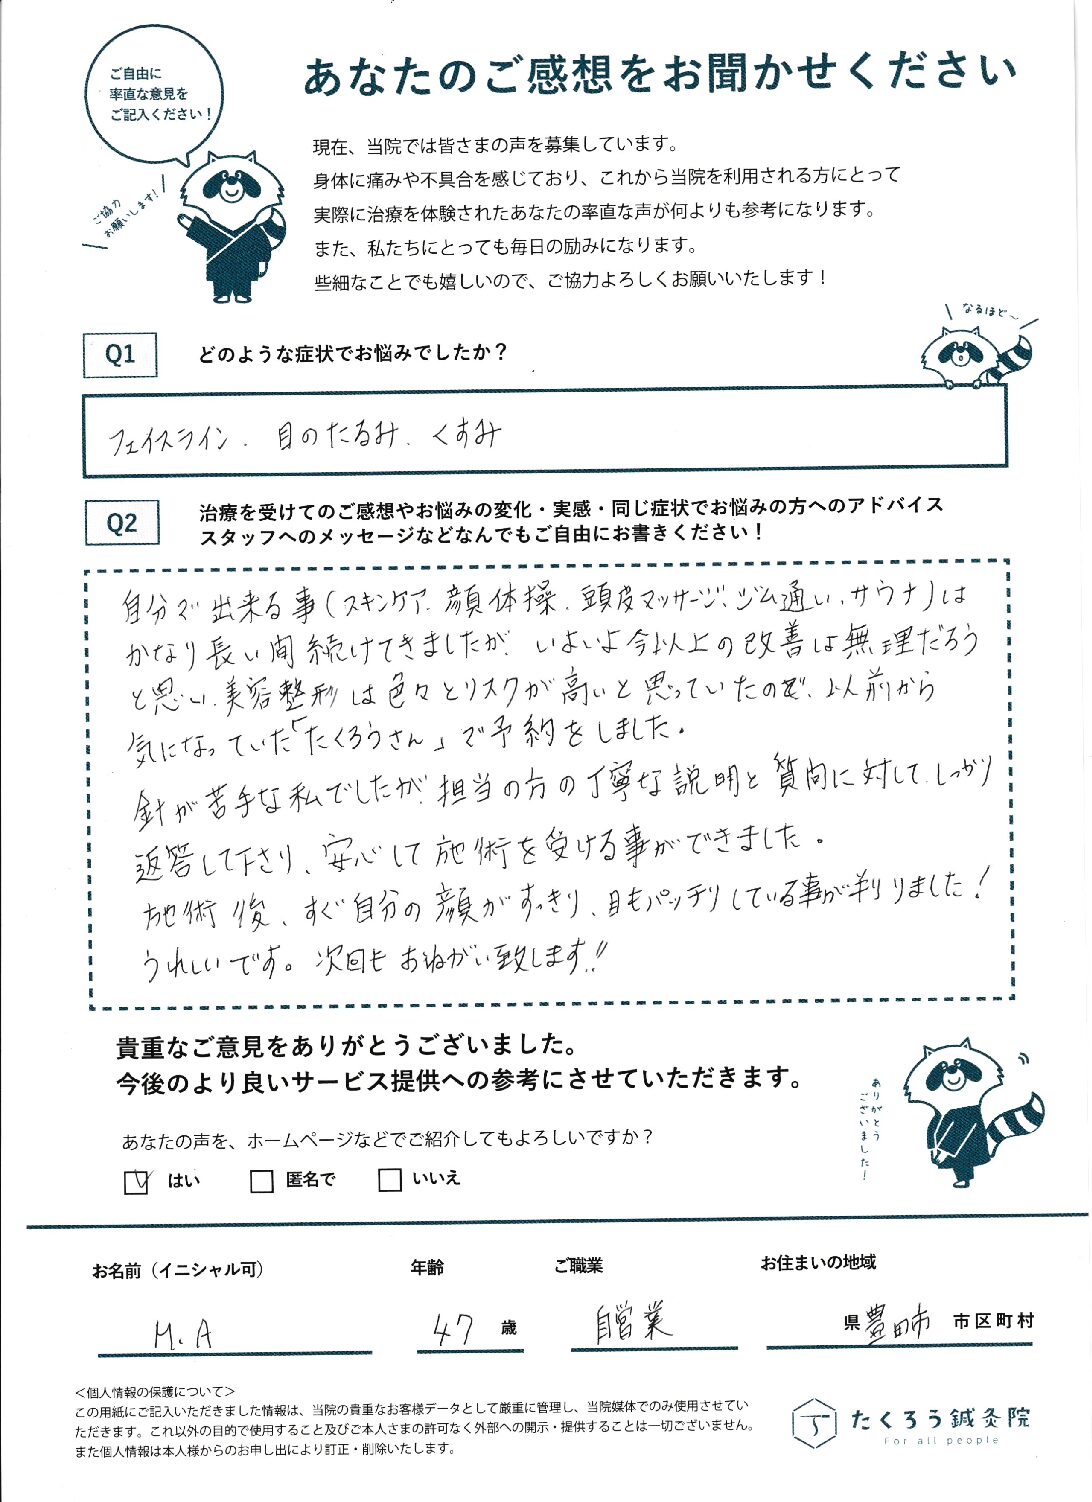 ご自由に
率直な意見を
ご記入ください！
ご協力
お願いします！
あなたのご感想をお聞かせください
現在、当院では皆さまの声を募集しています。
身体に痛みや不具合を感じており、これから当院を利用される方にとって
実際に治療を体験されたあなたの率直な声が何よりも参考になります。
また、私たちにとっても毎日の励みになります。
些細なことでも嬉しいので、ご協力よろしくお願いいたします！
なるほど〜
Q1 どのような症状でお悩みでしたか？
フェイスライン、目のたるみ、くすみ
Q2 治療を受けてのご感想やお悩みの変化・実感・同じ症状でお悩みの方へのアドバイス
スタッフへのメッセージなどなんでもご自由にお書きください！
自分で出来る事(スキンケア、顔体操、頭皮マッサージ、ジム通い、サウナ)は
かなり長い間続けてきましたが、いよいよ今以上の改善は無理だろう
と思い、美容整形は色々とリスクが高いと思っていたので、以前から
気になっていた「たくろうさん」で予約をしました。
針が苦手な私でしたが、担当の方の丁寧な説明と質問に対して、しっかり
返答して下さり、安心して施術を受ける事ができました。
施術後、すぐ自分の顔がすっきり、目もパッチリしている事が判りました！
うれしいです。次回もおねがい致します!!
貴重なご意見をありがとうございました。
今後のより良いサービス提供への参考にさせていただきます。
ありがとう
ございました！
あなたの声を、ホームページなどでご紹介してもよろしいですか？
はい 匿名で いいえ
お名前（イニシャル可） 年齢 ご職業 お住まいの地域
M.A 47 歳 自営業 県 豊田市 市区町村
＜個人情報の保護について＞
この用紙にご記入いただきました情報は、当院の貴重なお客様データとして厳重に管理し、当院媒体でのみ使用させてい
ただきます。これ以外の目的で使用すること及びご本人さまの許可なく外部への開示・提供することは一切ございません。
また個人情報は本人様からのお申し出により訂正・削除いたします。
たくろう鍼灸院
For all people